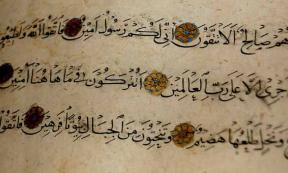 هم صالح الا تتقون اني لكم رسول امين فاتقوا الله
جري الا على رب العالمين اتتركون في ما هاهنا امنين
ونخل طلعها هضيم وتنحتون من الجبال بيوتا فرهين فاتقوا